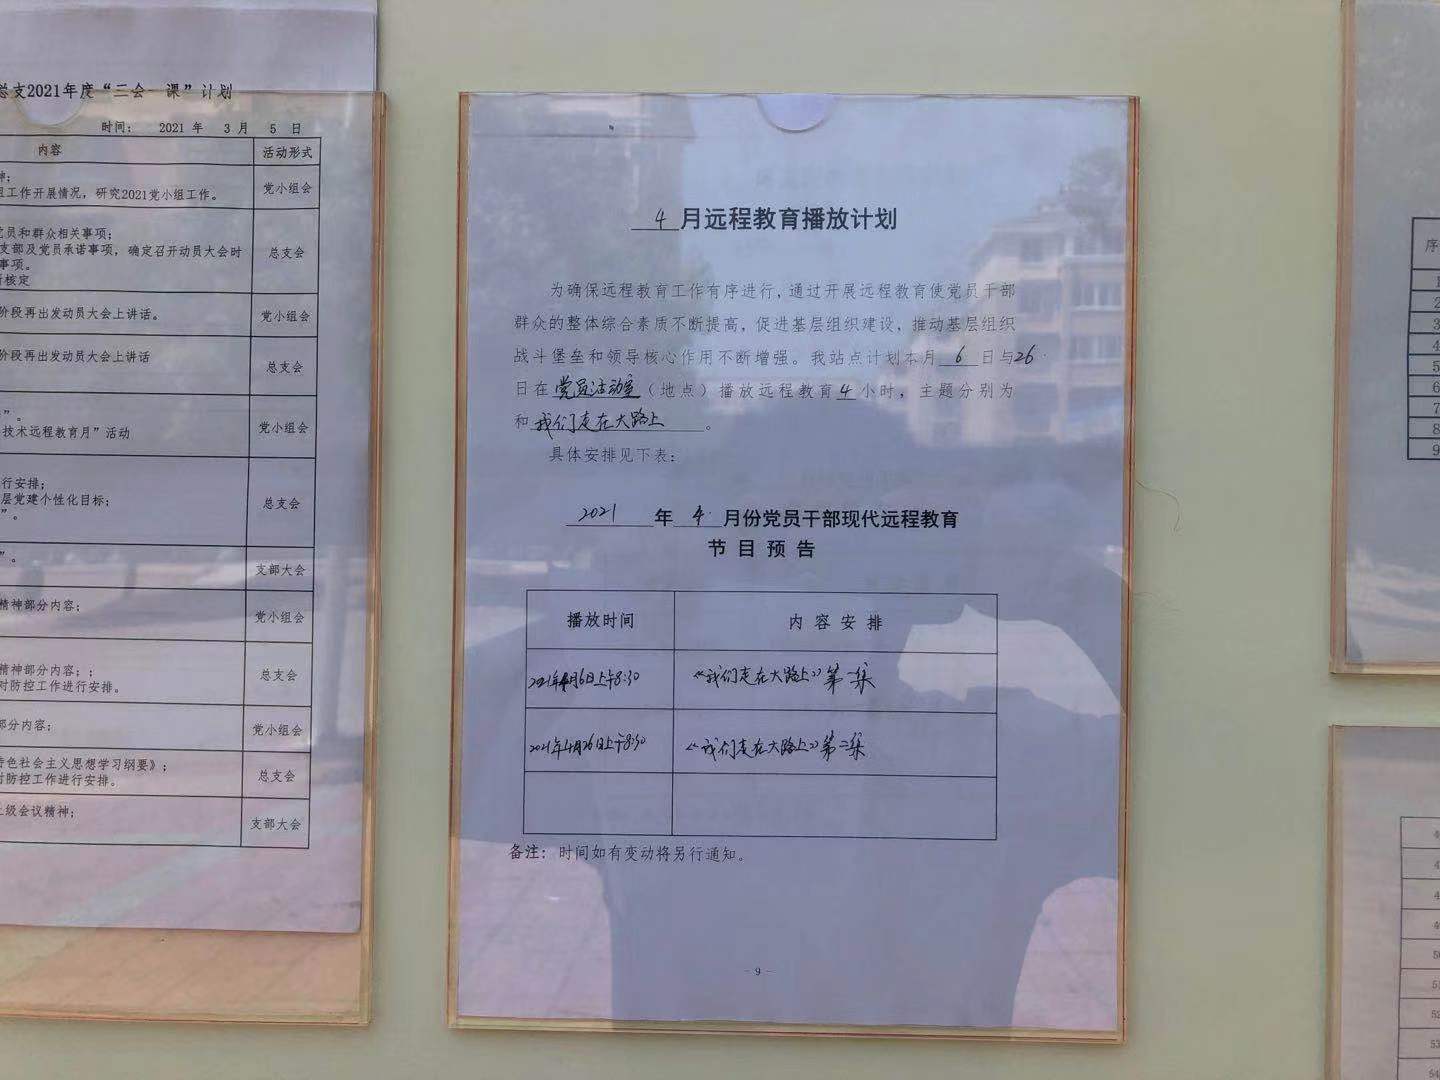 总支2021年度“三会一课”计划
时间： 2021 年 3 月 5 日
内容 活动形式
组工作开展情况，研究2021党小组工作。 党小组会
党员和群众相关事项；
支部及党员承诺事项，确定召开动员大会时 总支会
事项。
核定
阶段再出发动员大会上讲话。 党小组会
阶段再出发动员大会上讲话 总支会
”。
技术远程教育月”活动 党小组会
行安排；
层党建个性化目标； 总支会
”。
”。 支部大会
精神部分内容； 党小组会
精神部分内容；； 总支会
对防控工作进行安排。
部分内容； 党小组会
特色社会主义思想学习纲要》； 总支会
对防控工作进行安排。
上级会议精神； 支部大会
4 月远程教育播放计划
为确保远程教育工作有序进行，通过开展远程教育使党员干部
群众的整体综合素质不断提高，促进基层组织建设，推动基层组织
战斗堡垒和领导核心作用不断增强。我站点计划本月 6 日与26
日在 党员活动室（地点）播放远程教育 4 小时，主题分别为
和 我们走在大路上 。
具体安排见下表：
2021 年 4 月份党员干部现代远程教育
节目预告
播放时间 内容安排
2021年4月6日上午8:30 《我们走在大路上》第一集
2021年4月26日上午8:30 《我们走在大路上》第二集
备注：时间如有变动将另行通知。
- 9 -
序
1
2
3
4
5
6
7
8
9
50
51
52
53
54